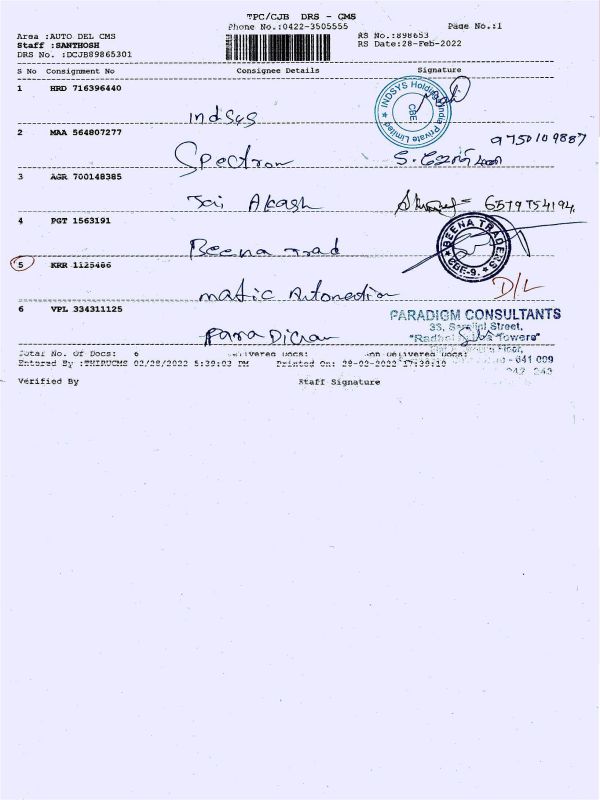 TPC/CJB DRS - CMS
Phone No.:0422-3505555 Page No.:1
Area :AUTO DEL CMS RS No.:898653
Staff :SANTHOSH RS Date:28-Feb-2022
DRS No. :DCJB89865301
S No Consignment No Consignee Details Signature
1 HRD 716396440
Indsys INDSYS Holding India Private Limited CBE
2 MAA 564807277 9750109887
Spectron S.
3 AGR 700148385
Jai Akash 6379754194
4 PGT 1563191
Beena Trad BEENA TRADERS CBE-9.
5 KRR 1125486
matic Automation D/L
6 VPL 334311125 PARADIGM CONSULTANTS
33, Street,
"Towers"
Floor,
- 641 009
Total No. Of Docs: 6 Delivered Docs: Non Delivered Docs:
Entered By :THIRUCMS 02/28/2022 5:39:03 PM Printed On: 28-02-2022 17:39:10
Verified By Staff Signature